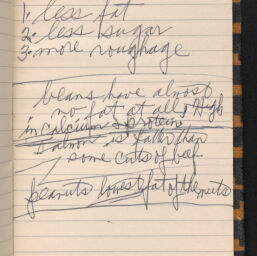 1. less fat
2. less sugar
3. more roughage
beans have almost
no fat at all & High
in calcium & protein
salmon is fatter than
some cuts of beef
peanuts lowest fat of the nuts